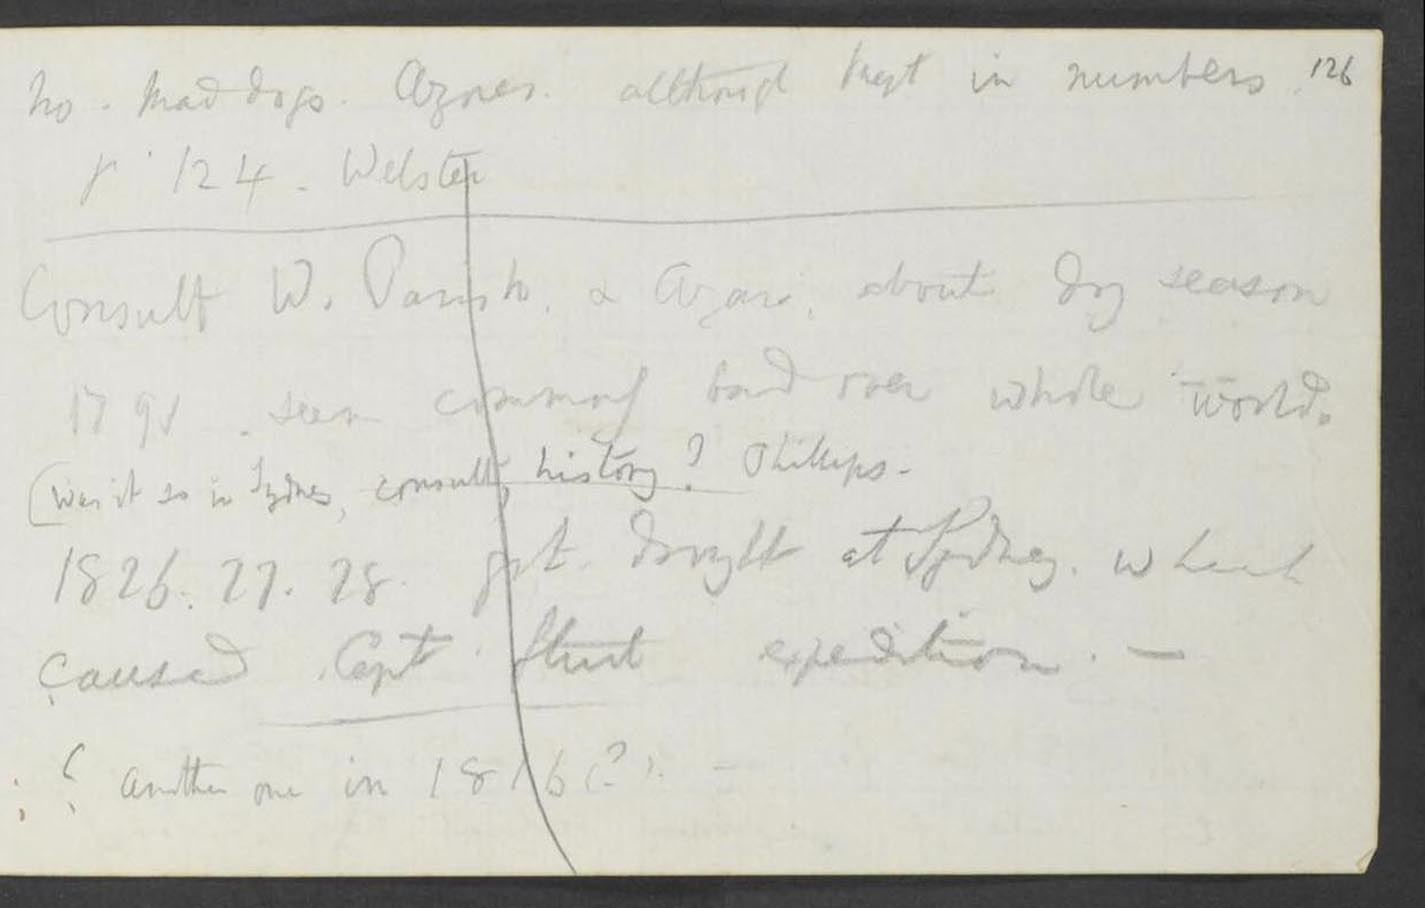 126
No. Mad dogs. Azores. although kept in numbers.
p. 124. Webster
Consult W. Parish. & Azara. about dry season
1791. seem commonly bad over whole world.
(Was it so in Sydney, consult, history? Phillips.
1826. 27. 28. grt. drought at Sydney. which
caused Capt Sturt expedition. —
? another one in 1816 (?). —